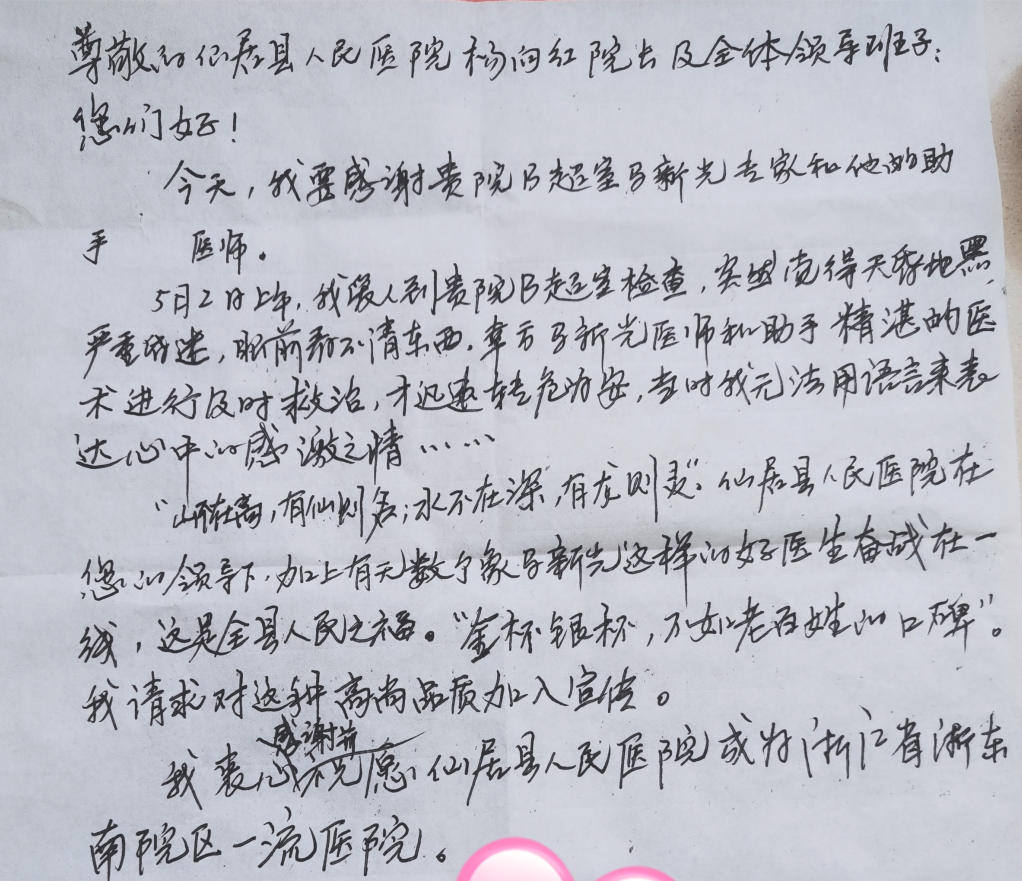 尊敬的仙居县人民医院杨向红院长及全体领导班子:
您们好!
今天,我要感谢贵院B超室马新光专家和他的助
手 医师。
5月2日上午,我家人到贵院B超室检查,突然觉得天昏地黑
严重昏迷,眼前看不清东西,幸亏马新光医师和助手精湛的医
术进行及时救治,才迅速转危为安,当时我无法用语言来表
达心中的感激之情……
“山不在高,有仙则名;水不在深,有龙则灵”。仙居县人民医院在
您的领导下,加上有无数个象马新光这样的好医生奋战在一
线,这是全县人民之福。“金杯银杯,不如老百姓的口碑”。
我请求对这种高尚品质加入宣传。
感谢并
我衷心祝愿仙居县人民医院成为浙江省浙东
南院区一流医院。